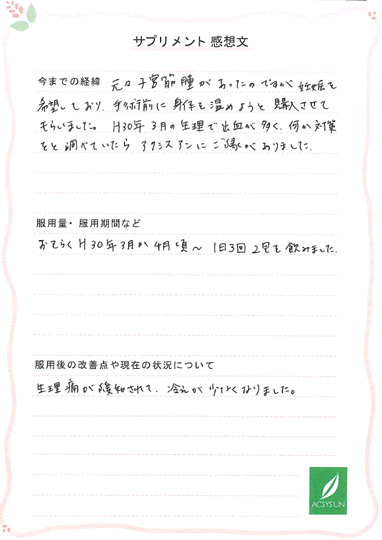 サプリメント 感想文
今までの経緯 元々子宮筋腫があったのですが 妊娠を
希望しており、手術前に身体を温めようと購入させて
もらいました。H30年3月の生理で出血が多く、何か対策
をと調べていたら アクシスアンにご縁がありました。
服用量・服用期間など
おそらくH30年3月か4月頃〜 1日3回2包を飲みました。
服用後の改善点や現在の状況について
生理痛が緩和されて、冷えが少なくなりました。
ACSYSUN